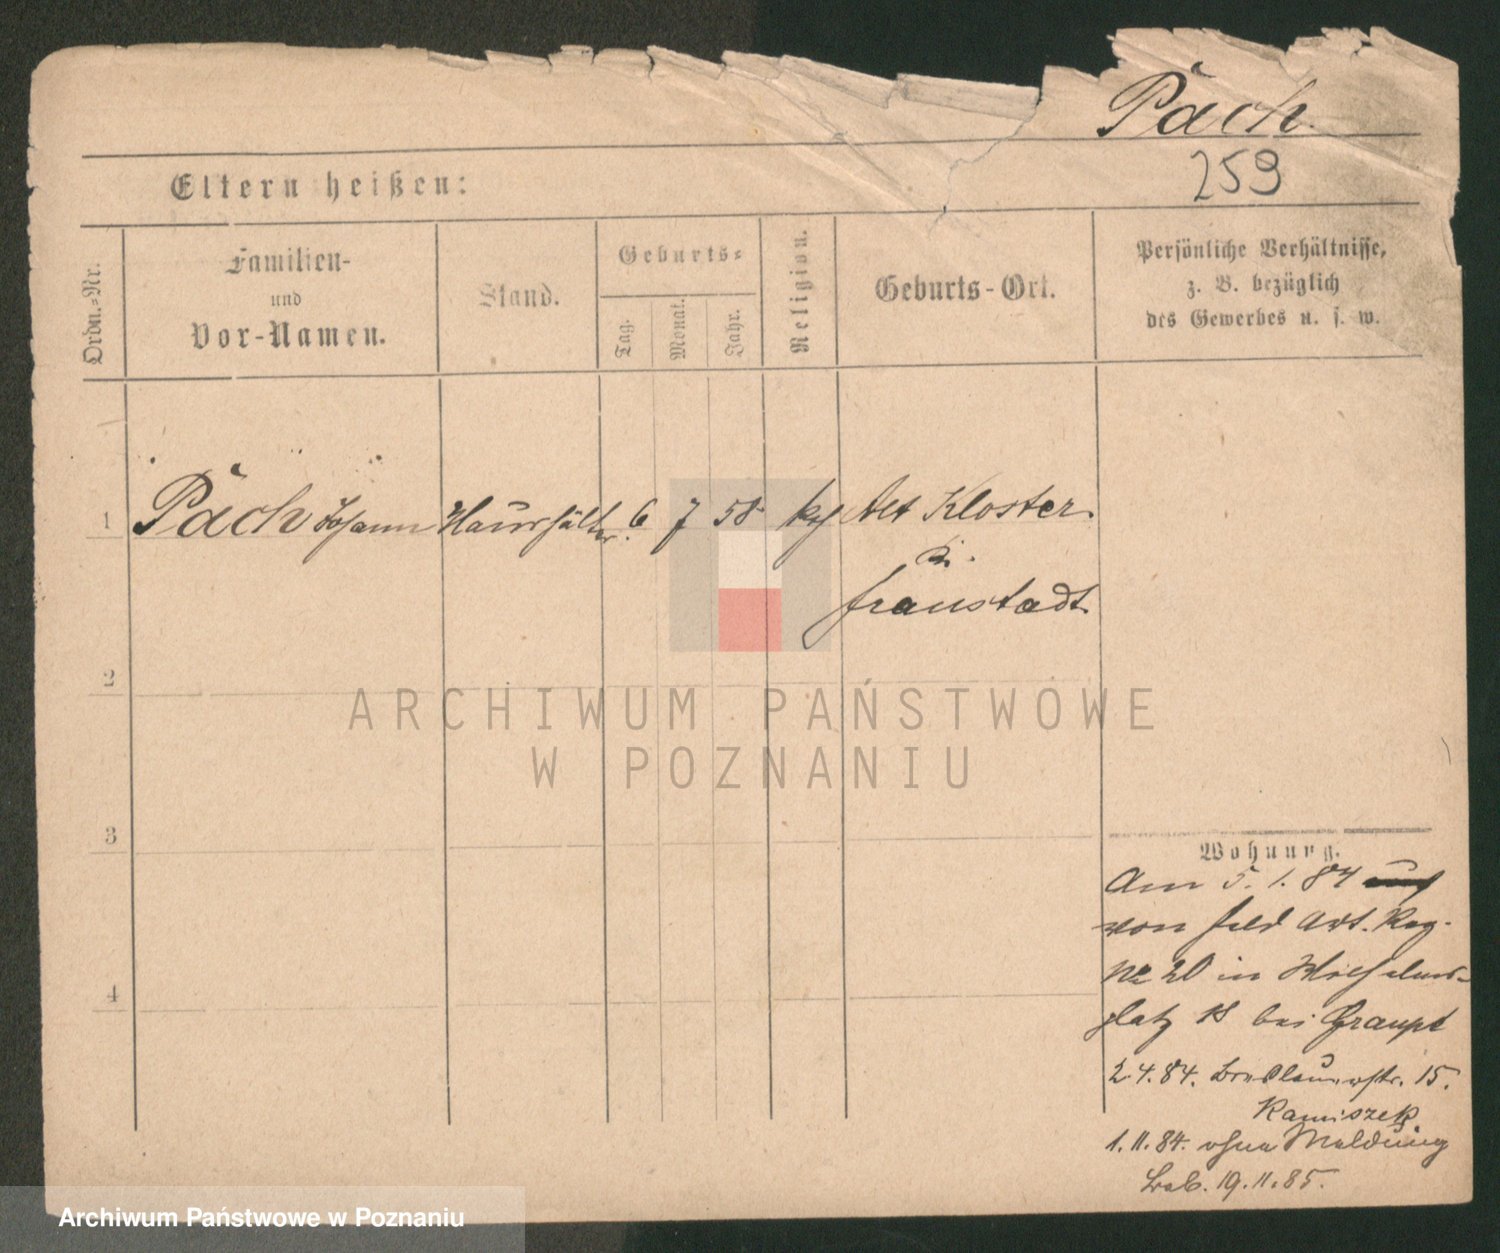 Päch.
259
Eltern heißen:
Ordn.-Nr.
Familien-
und
Vor-Namen.
Stand.
Geburts-
Tag.
Monat.
Jahr.
Religion.
Geburts-Ort.
Persönliche Verhältnisse,
z. B. bezüglich
des Gewerbes u. s. w.
1 Päch Johann Haushälter. 6 7 58 kg Alt Kloster.
Fraustadt.
2
3
4
Wohnung.
Am 5. 1. 84
von Feld Art. Reg.
No 20 in Wilhelms-
platz 18 bei Graupe
2.4.84. Breslauerstr. 15.
Kamiszek
1.11.84. ohne Meldung
19.11.85.
ARCHIWUM PAŃSTWOWE
W POZNANIU
Archiwum Państwowe w Poznaniu